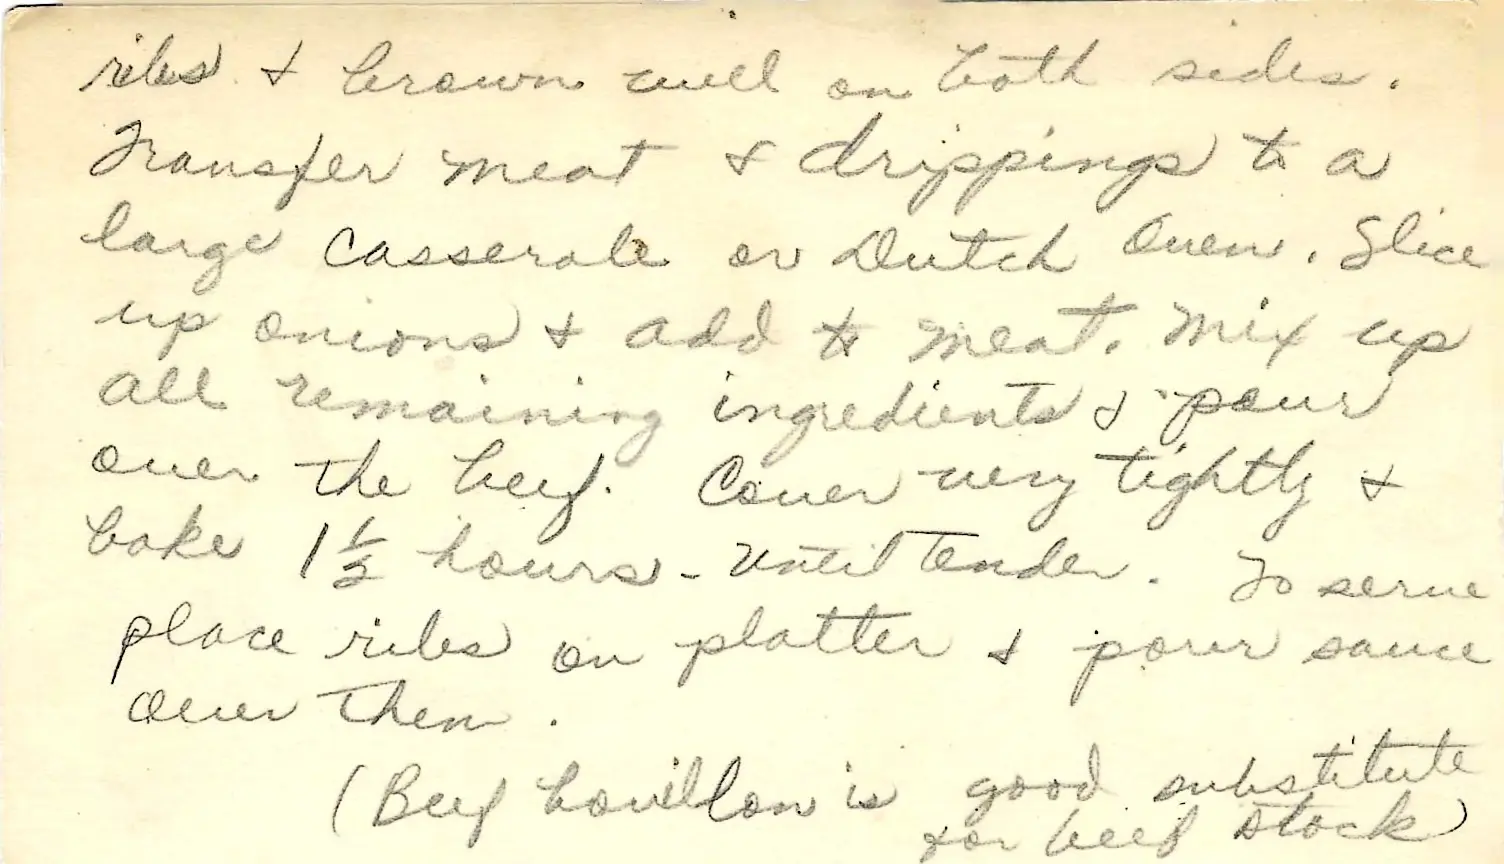 ribs & brown well on both sides.
Transfer meat & drippings to a
large casserole or Dutch Oven. Slice
up onions & add to meat. Mix up
all remaining ingredients & pour
over the beef. Cover very tightly &
bake 1 1/2 hours - until tender. To serve
place ribs on platter & pour sauce
over them.
(Beef bouillon is good substitute
for beef stock)